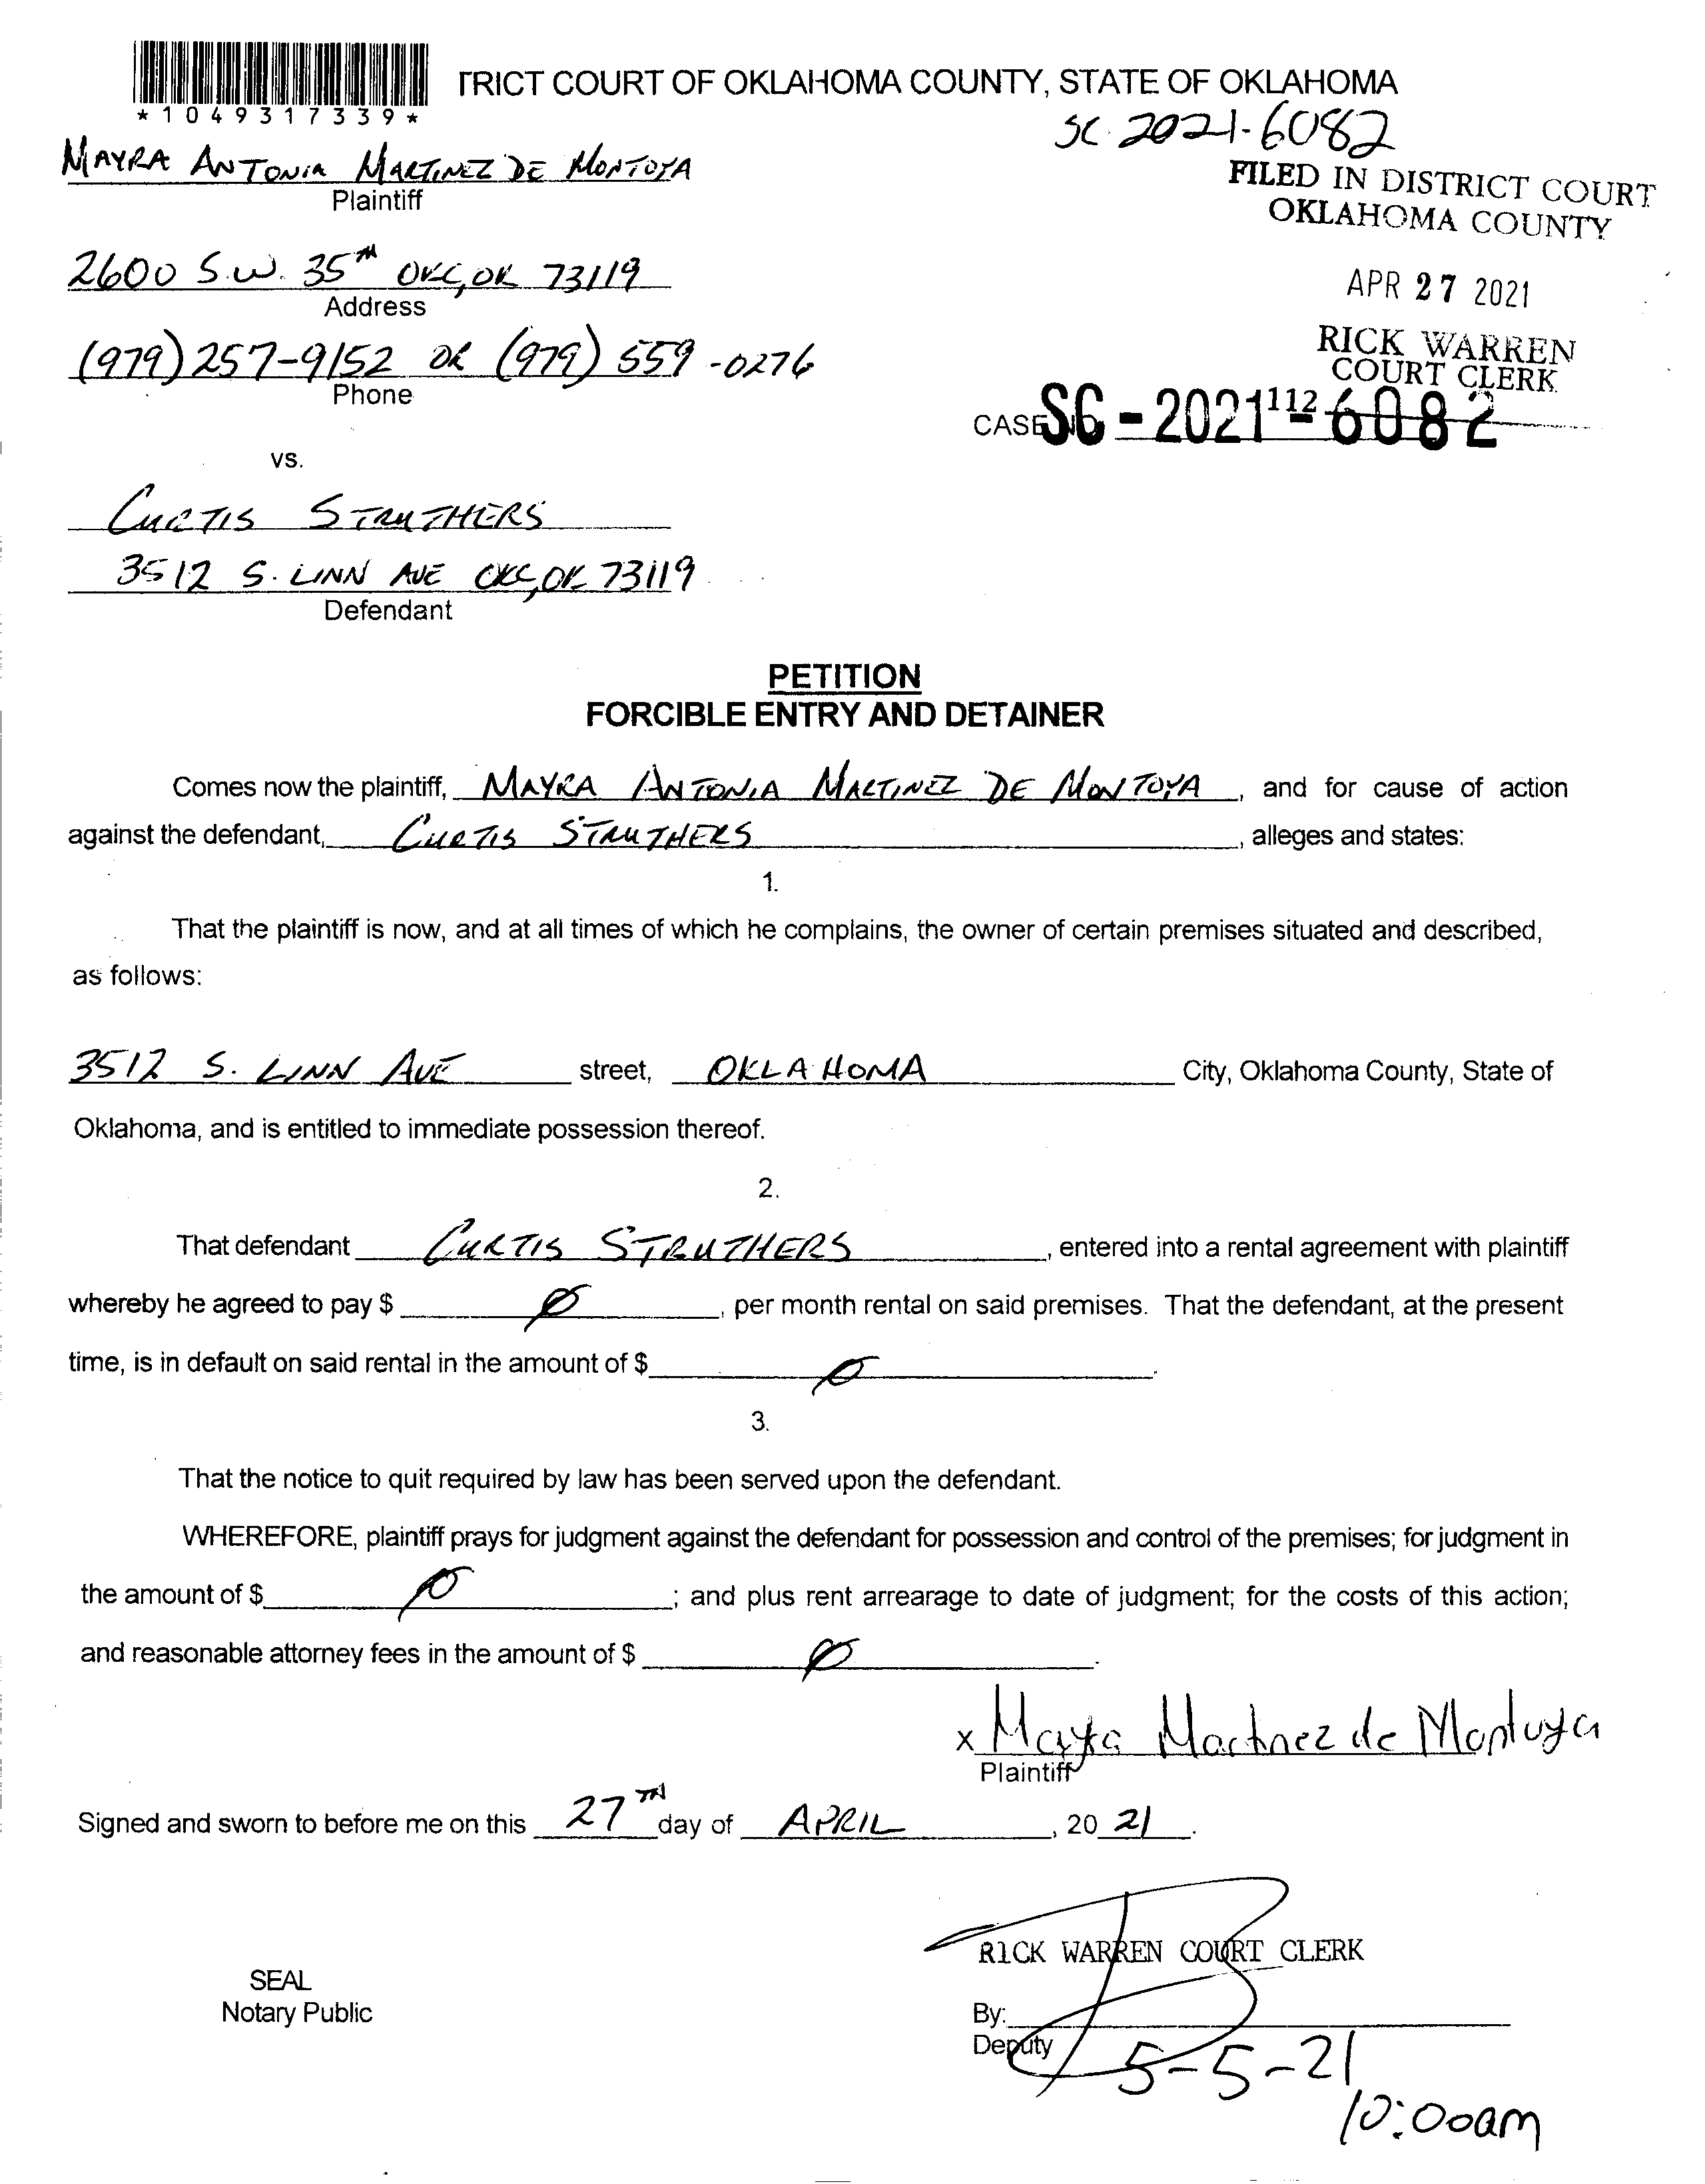 TRICT COURT OF OKLAHOMA COUNTY, STATE OF OKLAHOMA
*1049317339*
SC 2021-6082
MAYRA ANTONIA MARTINEZ DE MONTOYA
Plaintiff
FILED IN DISTRICT COURT
OKLAHOMA COUNTY
2600 S.W. 35TH OKC, OK 73119
Address
APR 27 2021
(979) 257-9152 OR (979) 559-0276
Phone
RICK WARREN
COURT CLERK
112
CASE NO. SC-2021-6082
vs.
CURTIS STRUTHERS
3512 S. LINN AVE OKC, OK 73119
Defendant
PETITION
FORCIBLE ENTRY AND DETAINER
Comes now the plaintiff, MAYRA ANTONIA MARTINEZ DE MONTOYA, and for cause of action
against the defendant, CURTIS STRUTHERS, alleges and states:
1.
That the plaintiff is now, and at all times of which he complains, the owner of certain premises situated and described,
as follows:
3512 S. LINN AVE street, OKLAHOMA City, Oklahoma County, State of
Oklahoma, and is entitled to immediate possession thereof.
2.
That defendant CURTIS STRUTHERS, entered into a rental agreement with plaintiff
whereby he agreed to pay $ Ø, per month rental on said premises. That the defendant, at the present
time, is in default on said rental in the amount of $ Ø.
3.
That the notice to quit required by law has been served upon the defendant.
WHEREFORE, plaintiff prays for judgment against the defendant for possession and control of the premises; for judgment in
the amount of $ Ø; and plus rent arrearage to date of judgment; for the costs of this action;
and reasonable attorney fees in the amount of $ Ø.
x Mayra Martinez de Montoya
Plaintiff
Signed and sworn to before me on this 27TH day of APRIL, 20 21.
RICK WARREN COURT CLERK
SEAL
Notary Public
By:
Deputy
5-5-21
10:00am